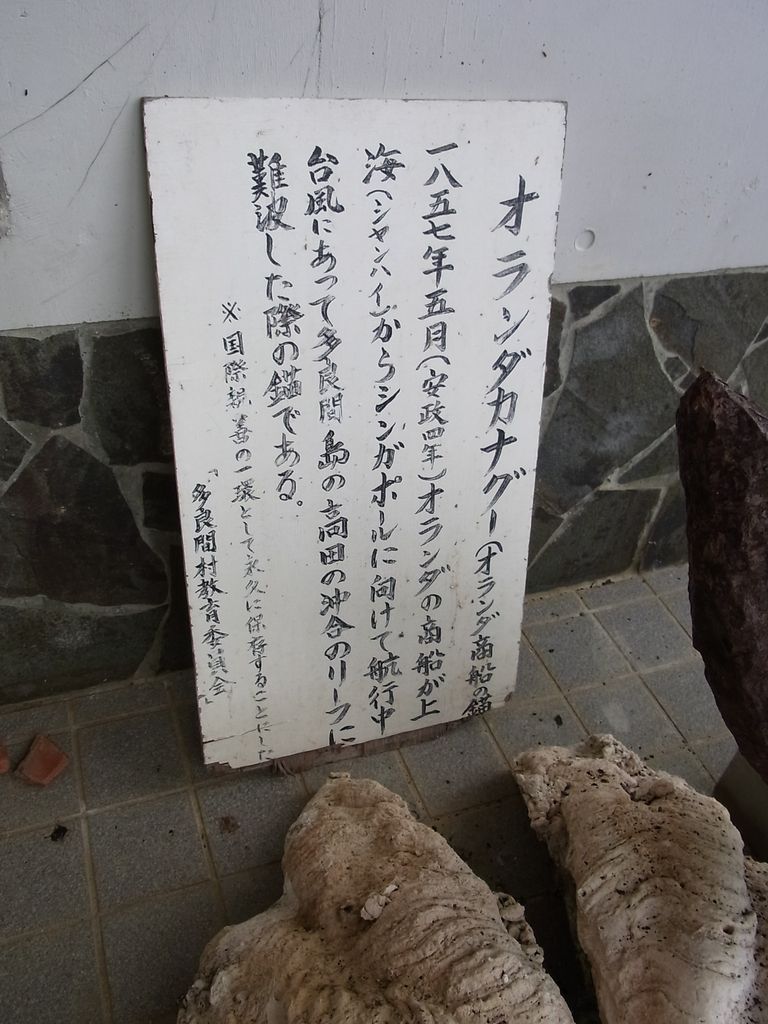 オランダカナグー(オランダ商船の錨
一八五七年五月(安政四年)オランダの商船が上
海(シャンハイ)からシンガポールに向けて航行中
台風にあって多良間島の高田の沖合のリーフに
難波した際の錨である。
※国際親善の一環として永久に保存することにした
「多良間村教育委員会」